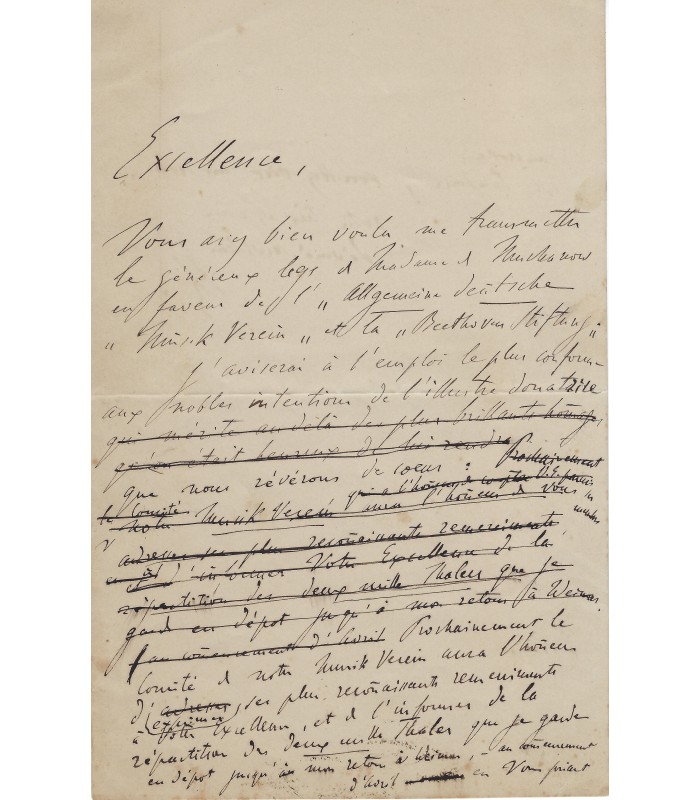 Excellence,
Vous avez bien voulu me transmettre
le généreux legs de Madame de Muchanow
en faveur de l' „Allgemeine deutsche
„Musik Verein" et la „Beethoven Stiftung".
J'aviserai à l'emploi le plus conforme
aux nobles intentions de l'illustre donatrice
qui mérite au delà des plus brillants hommages
qu'on était heureux de lui rendre
que nous révérons de coeur. Prochainement
qui a l'honneur de compter V. E. parmi
le Comité
notre Musik Verein aura l'honneur de vous
membres
adresser ses plus reconnaissants remerciments
et d'informer Votre Excellence de la
répartition des deux mille Thalers que je
garde en dépot jusqu'à mon retour à Weimar
(au commencement d'Avril Prochainement le
Comité de notre Musik Verein aura l'honneur
d'adresser ses plus reconnaissants remerciments
(exprimer
à Votre Excellence, et de l'informer de la
répartition des deux mille Thaler que je garde
en dépot jusqu'à mon retour à Weimar, – au commencement
d'Avril en Vous priant